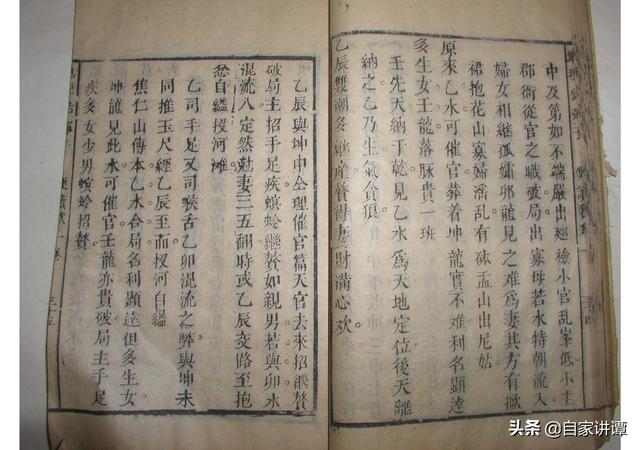 中及第如不端嚴出廵檢小官亂峯低小主
郡衙從官之職破局出寡母若水特朝流入
婦女相継孤孀邜龍見之难爲妻其方有掀
裙抱花山寡婦淫乱有砵盂山出尼姑
原來乙水可催官葬着坤龍實不难利名顯達
多生女壬龍落脉貴一班
壬先天納于乾見乙水爲天地定位後天離
納之乙乃生氣貪狼
乙辰雙潮多絶產贅得妻財滿心欢
乙辰與坤申仝理催官篇天官去來招継贅
破局主招手足疾螟蛉継贅如親男若與卯水
混流八定然尅妻三五翻時或乙辰交路至抱
愁自縊投河灘
乙司手足又司喉舌乙卯混流之弊與坤未
同推玉尺經乙辰至而投河自縊
焦仁山傳本乙水合局名利顯達但多生女
坤龍見此水可催官壬龍亦貴破局主手足
疾多女少男螟蛉招贅
三五
头条 @自家讲谭